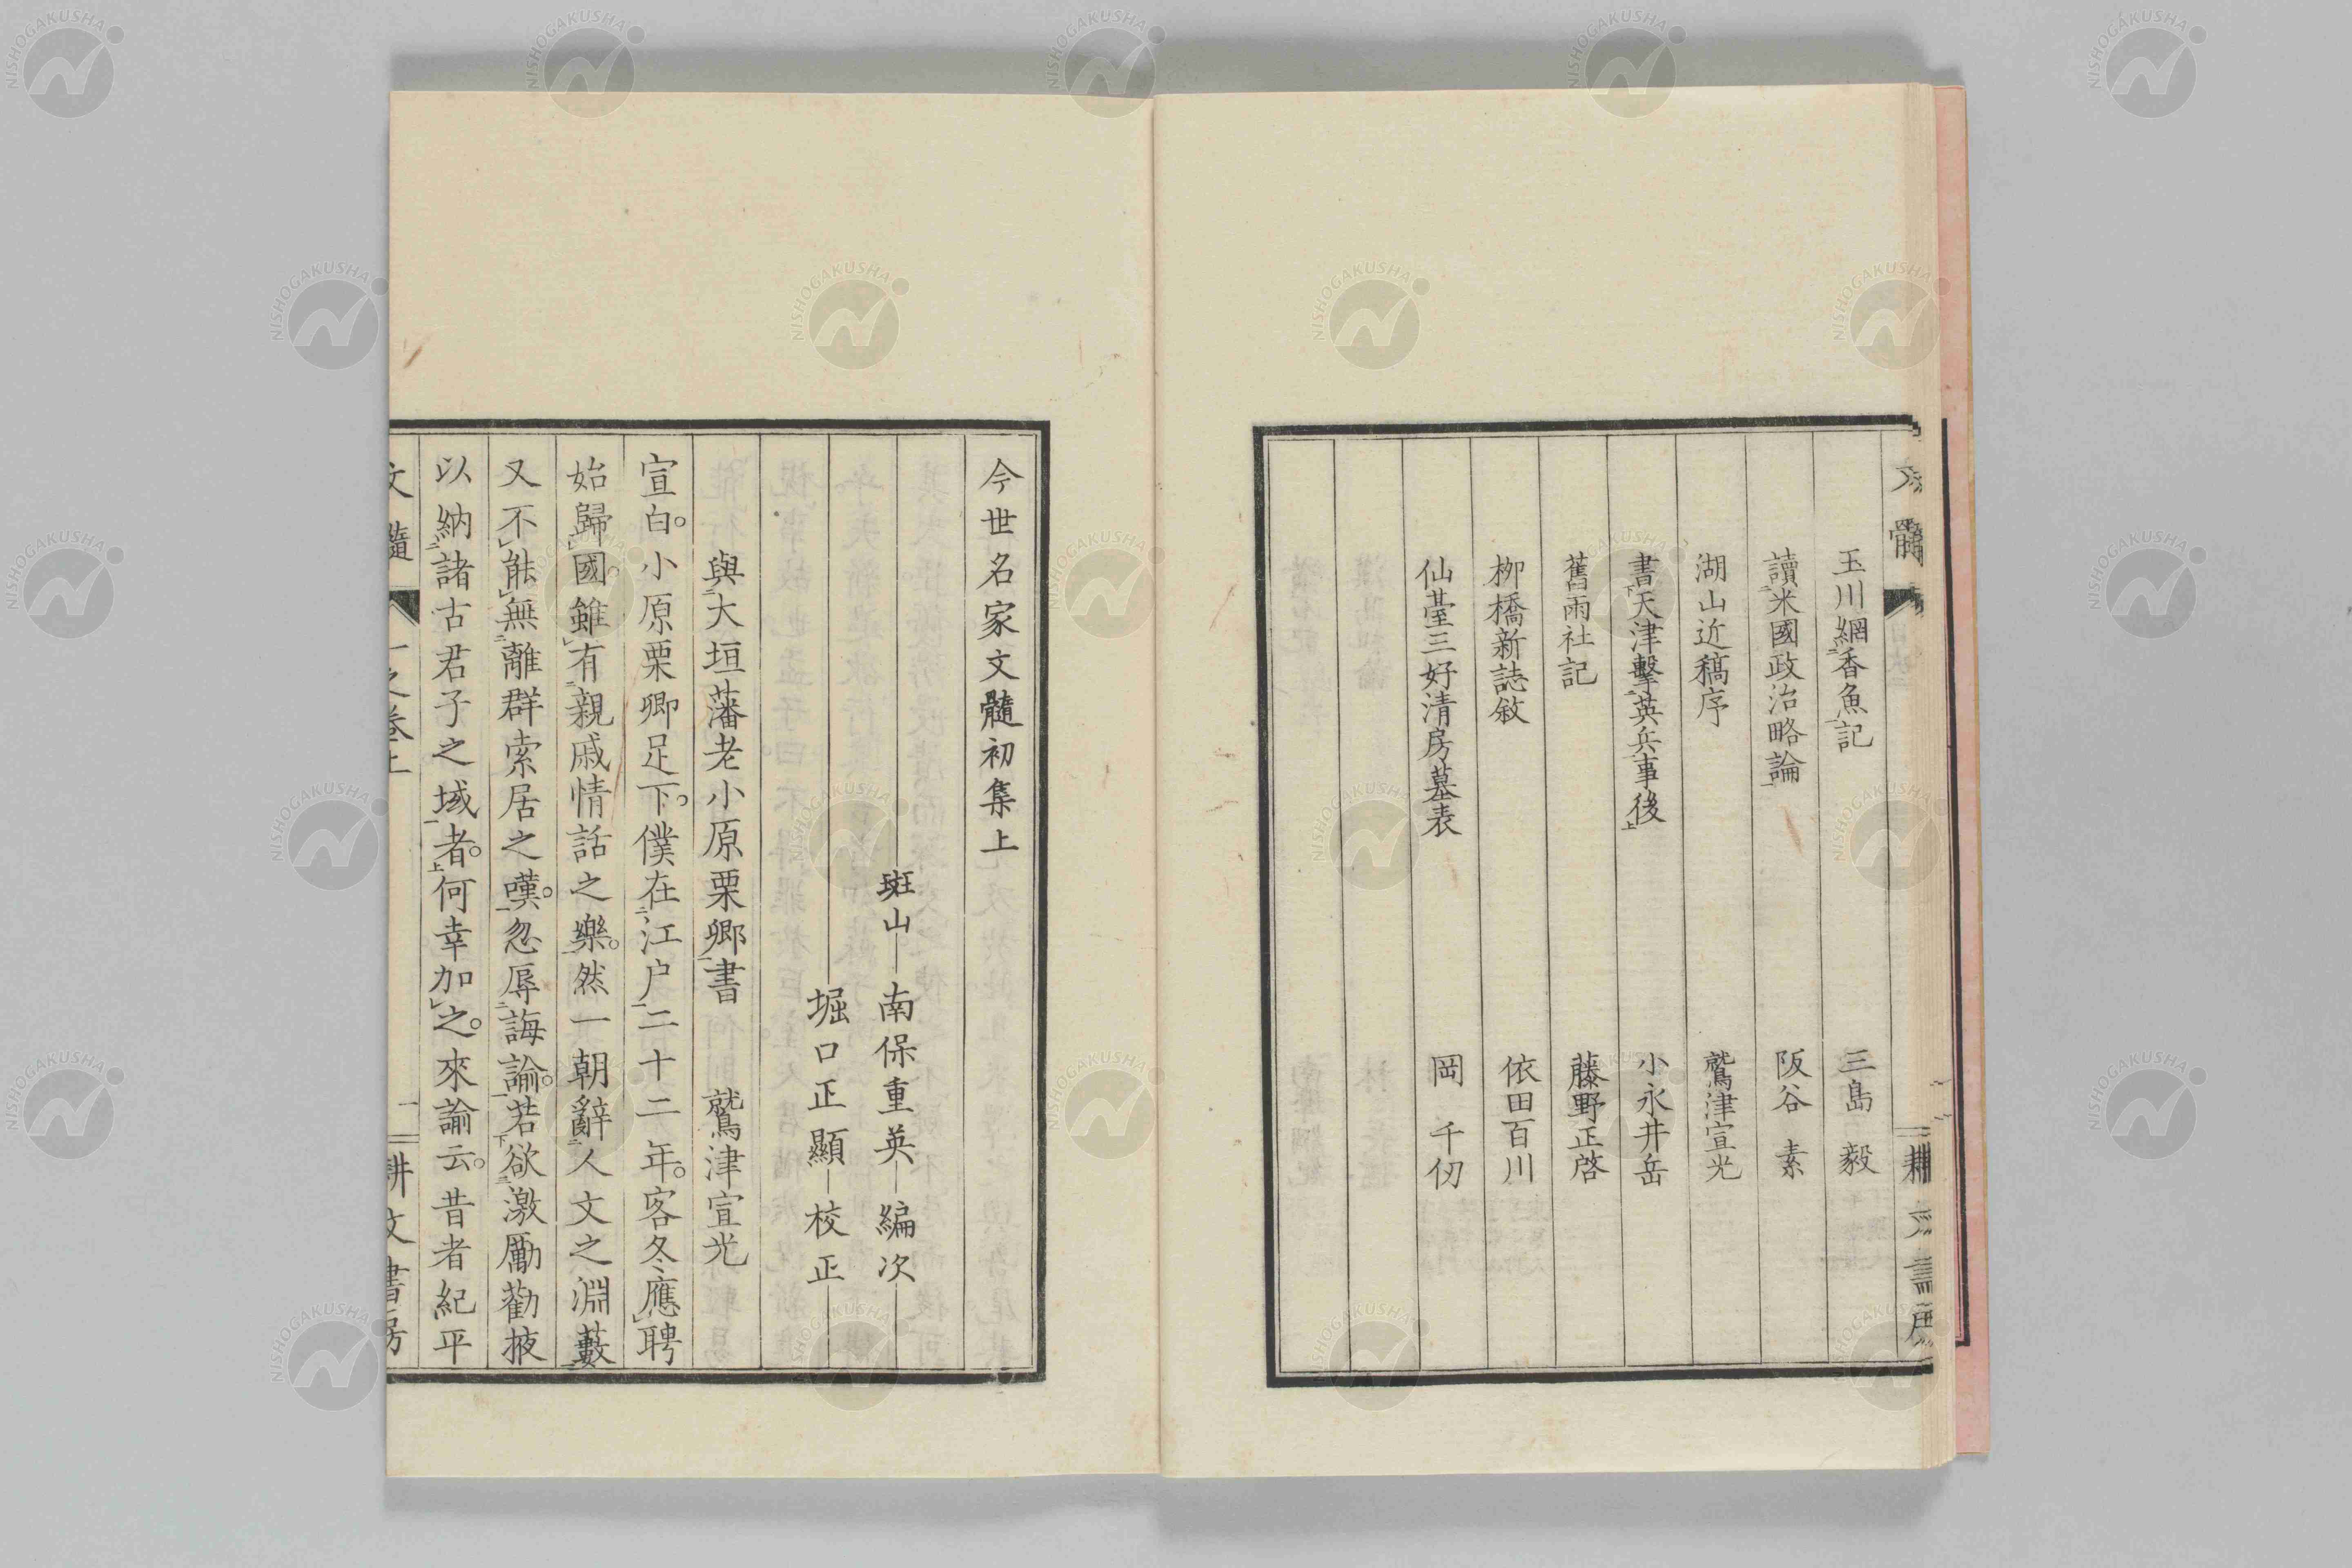 玉川網香魚記 三島毅
讀米國政治略論 阪谷素
湖山近稿序 鷲津宣光
書天津擊英兵事後 小永井岳
舊雨社記 藤野正啓
柳橋新誌敘 依田百川
仙臺三好清房墓表 岡千仞
今世名家文髓初集上
斑山 南保重英 編次
堀口正顯 校正
與大垣藩老小原栗卿書 鷲津宣光
宣白。小原栗卿足下。僕在江户二十二年。客冬應聘
始歸國。雖有親戚情話之樂。然一朝辭人文之淵藪
又不能無離群索居之嘆。忽辱誨諭。若欲激勵勸掖
以納諸古君子之域者。何幸加之。來諭云。昔者紀平
文髓 一之卷上 一 耕文書房
NISHOGAKUSHA